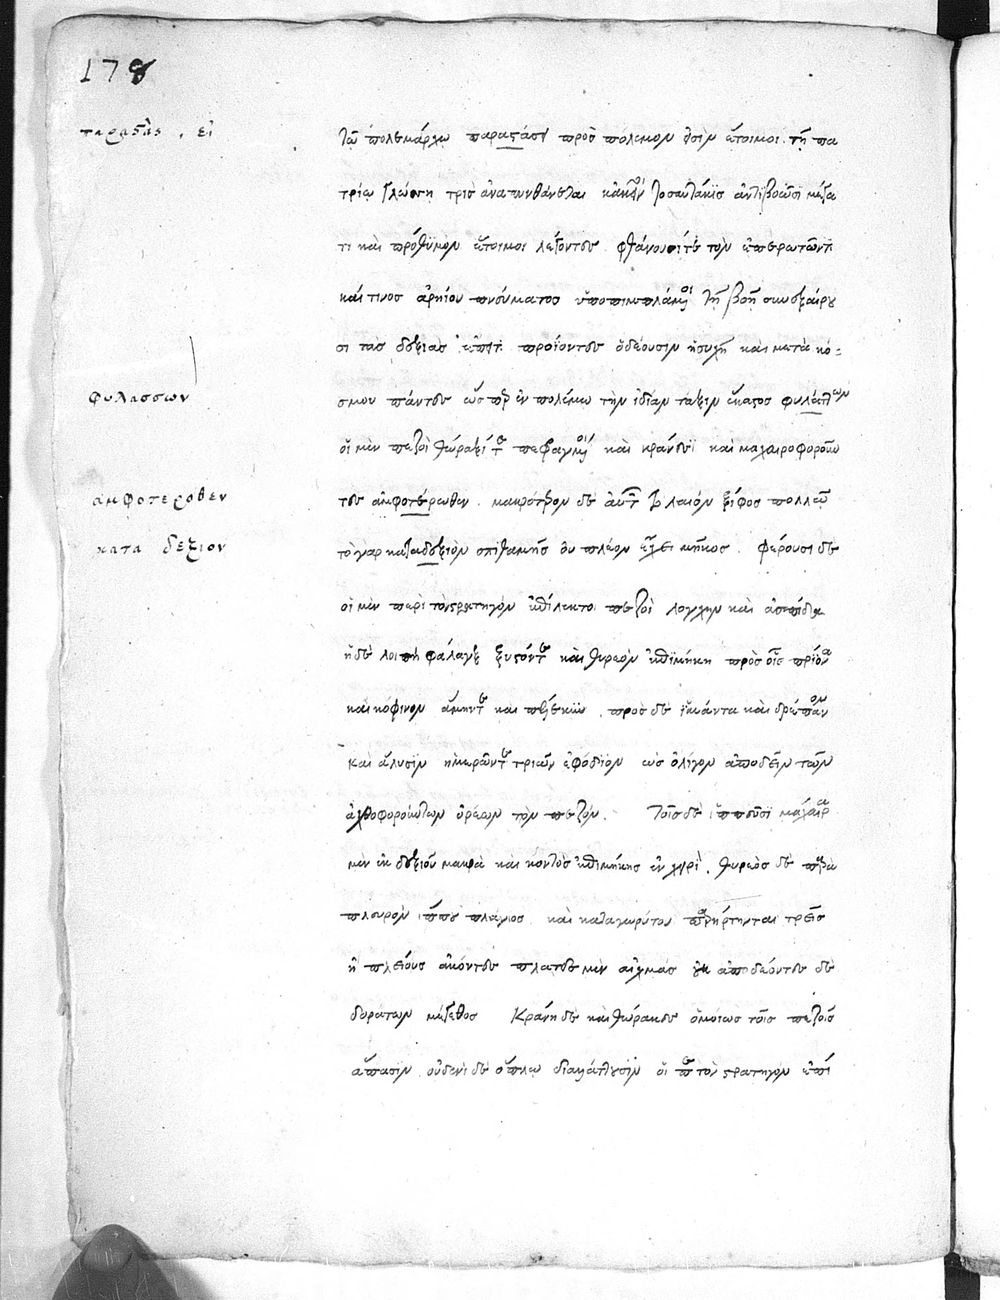 178
παραστὰς . εἰ
τῷ πολεμάρχῳ παραστάσι πρὸς πόλεμον εἰσιν ἕτοιμοι. τῇ πα
τρίῳ γλώσσῃ τρὶς ἀναπυνθάνεται κἀκεῖνοι τοσαυτάκις ἀντιβοῶσι μέγα
τι καὶ πρόθυμον ἕτοιμοι λέγοντες φθάνουσί τε τὸν ἐπερωτῶντα
καί τινος ἀρηίου πνεύματος ὑποπιμπλάμενοι τῇ βοῇ συνεξαίρου
σι τὰς δεξιὰς προϊόντες ὁδεύουσιν ἡσυχῇ καὶ μετὰ κό-
φυλασσων
σμου πάντες ὥσπερ ἐν πολέμῳ τὴν ἰδίαν τάξιν ἕκαστος φυλάττων
οἱ μὲν πεζοὶ θώραξί τε πεφραγμένοι καὶ κράνεσι καὶ μαχαιροφοροῦν
αμφοτεροθεν
τες ἀμφοτέρωθεν. μακρότερον δὲ αὐτῶν τὸ λαιὸν ξίφος πολλῷ
κατα δεξιον
τὸ γὰρ κατὰ δεξιὸν σπιθαμῆς οὐ πλέον ἔχει μῆκος. φέρουσι δὲ
οἱ μὲν περὶ τὸν στρατηγὸν ἐπίλεκτοι πεζοὶ λόγχην καὶ ἀσπίδα
ἡ δὲ λοιπὴ φάλαγξ ξυστόν τε καὶ θυρεὸν ἐπιμήκη πρὸς οἷς πρίονα
καὶ κόφινον ἄμην τε καὶ πέλεκυν, πρὸς δὲ ἱμάντα καὶ δρέπανον
καὶ ἅλυσιν ἡμερῶν τε τριῶν ἐφόδιον ὡς ὀλίγον ἀποδεῖν τῶν
ἀχθοφορούντων ὀρέων τὸν πεζόν. Τοῖς δὲ ἱππεῦσι μάχαιρα
μὲν ἐκ δεξιοῦ μακρὰ καὶ κοντὸς ἐπιμήκης ἐν χειρί, θυρεὸς δὲ παρὰ
πλευρὸν ἵππου πλάγιος καὶ κατὰ γωρυτοῦ παρήρτηνται τρεῖς
ἢ πλείους ἄκοντες πλατεῖς μὲν αἰχμὰς οὐκ ἀποδέοντες δὲ
δοράτων μέγεθος Κράνη δὲ καὶ θώρακες ὁμοίως τοῖς πεζοῖς
ἅπασιν οὐδενὶ δὲ ὅπλῳ διαλλάττουσιν οἱ περὶ τὸν στρατηγὸν ἐπί